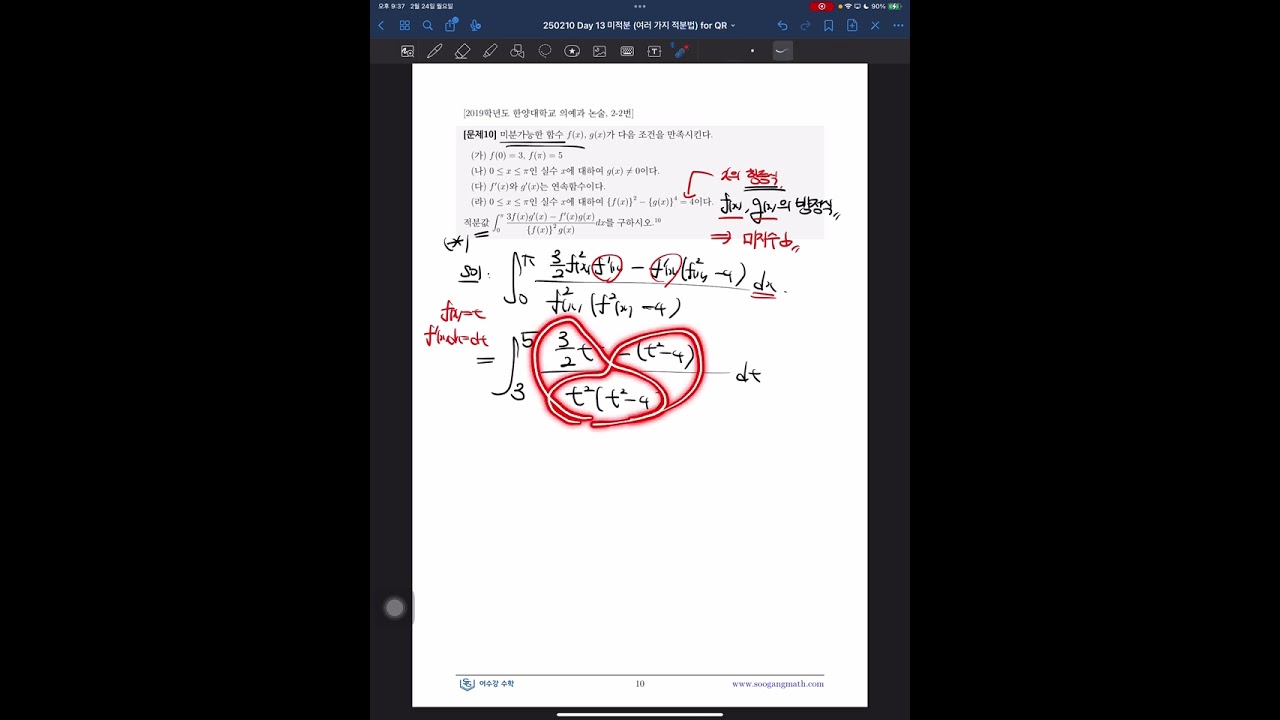 오후 9:37 2월 24일 월요일
90%
250210 Day 13 미적분 (여러 가지 적분법) for QR
[2019학년도 한양대학교 의예과 논술, 2-2번]
[문제10] 미분가능한 함수 f(x), g(x)가 다음 조건을 만족시킨다.
(가) f(0) = 3, f(π) = 5
(나) 0 ≤ x ≤ π인 실수 x에 대하여 g(x) ≠ 0이다.
(다) f′(x)와 g′(x)는 연속함수이다.
(라) 0 ≤ x ≤ π인 실수 x에 대하여 {f(x)}² − {g(x)}⁴ = 4이다.
적분값 ∫₀^π (3f(x)g′(x) − f′(x)g(x))/({f(x)}²g(x)) dx를 구하시오.¹⁰
x의 항등식
f(x), g(x)의 방정식
⇒ 미지수
(*)
sol:
∫₀^π (3/2 f²(x) f′(x) − f′(x)(f²(x) − 4))/(f²(x)(f²(x) − 4)) dx
f(x)=t
f′(x)dx=dt
= ∫₃^5 (3/2 t² − (t²−4))/(t²(t²−4 dt
여수강 수학
10
www.soogangmath.com